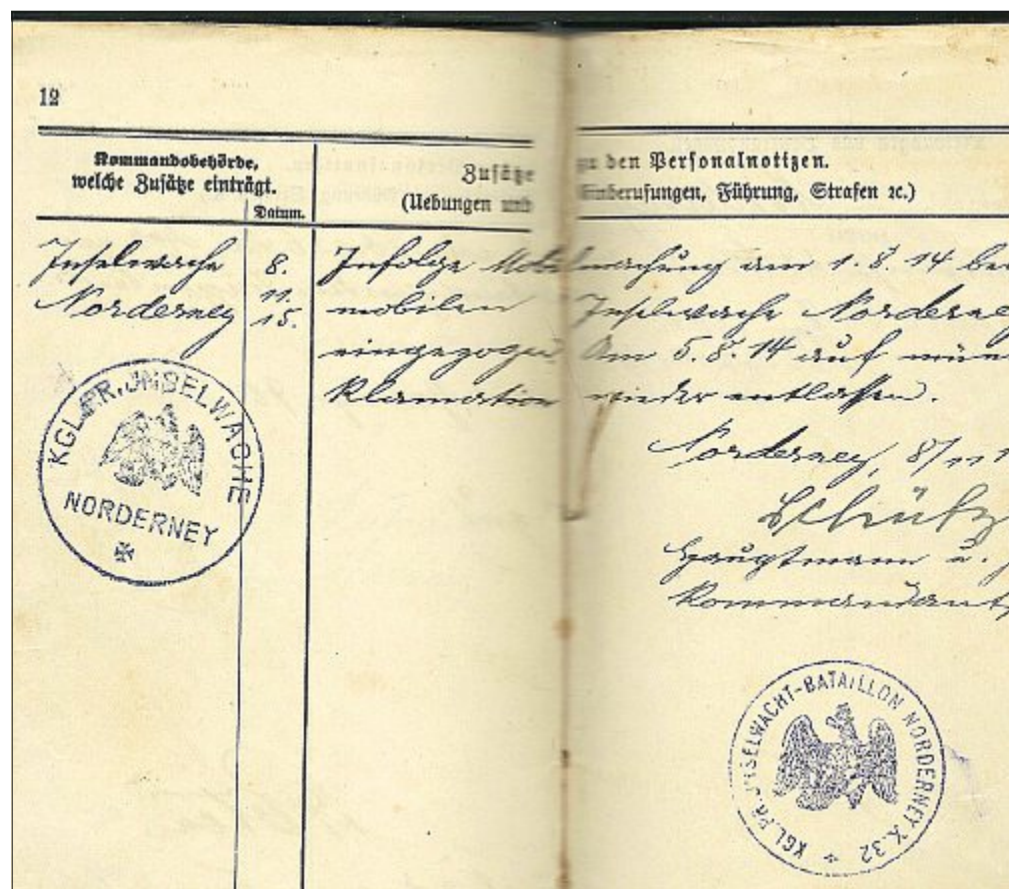 12
Kommandobehörde,
welche Zusätze einträgt.
Datum.
Zusätze zu den Personalnotizen.
(Uebungen und Einberufungen, Führung, Strafen ꝛc.)
Inselwache
Norderney
8.
11.
15.
Infolge Mobilmachung am 1.8.14 bei
mobilen Inselwache Norderney
eingezogen Am 5.8.14 auf
Klamation wieder entlassen.
Norderney, 8/11 1
Schütz
Hauptmann u.
Kommandant
KGL.PR.INSELWACHE
NORDERNEY
KGL.PR.INSELWACHT-BATAILLON NORDERNEY X.32